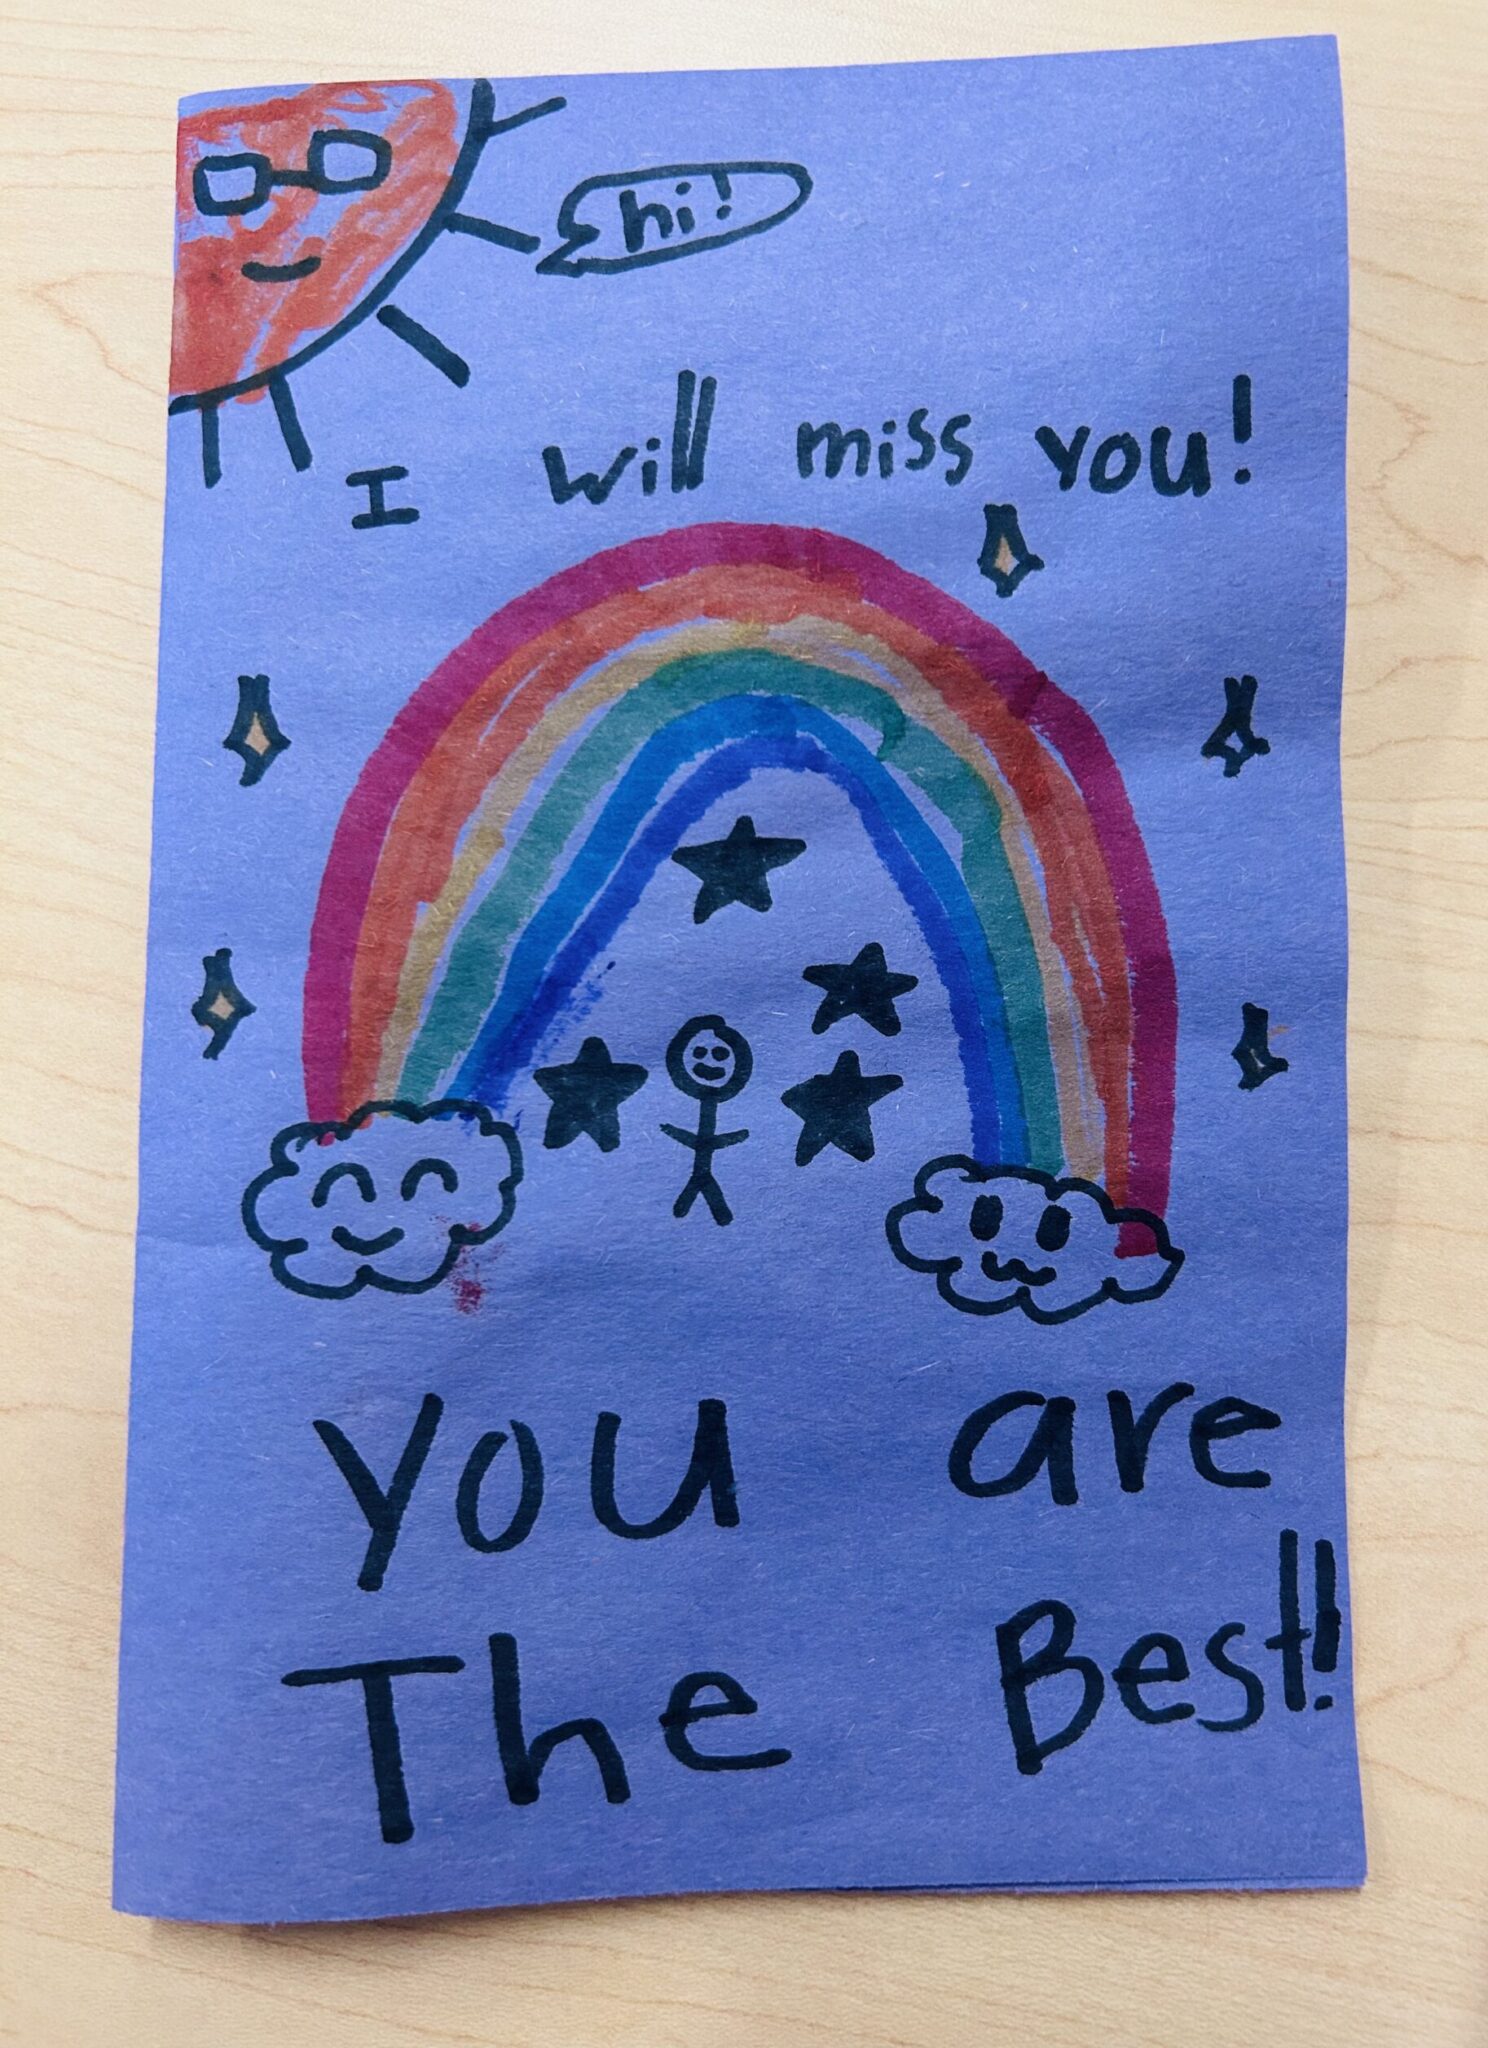 hi!
I will miss you!
You are
The Best!!